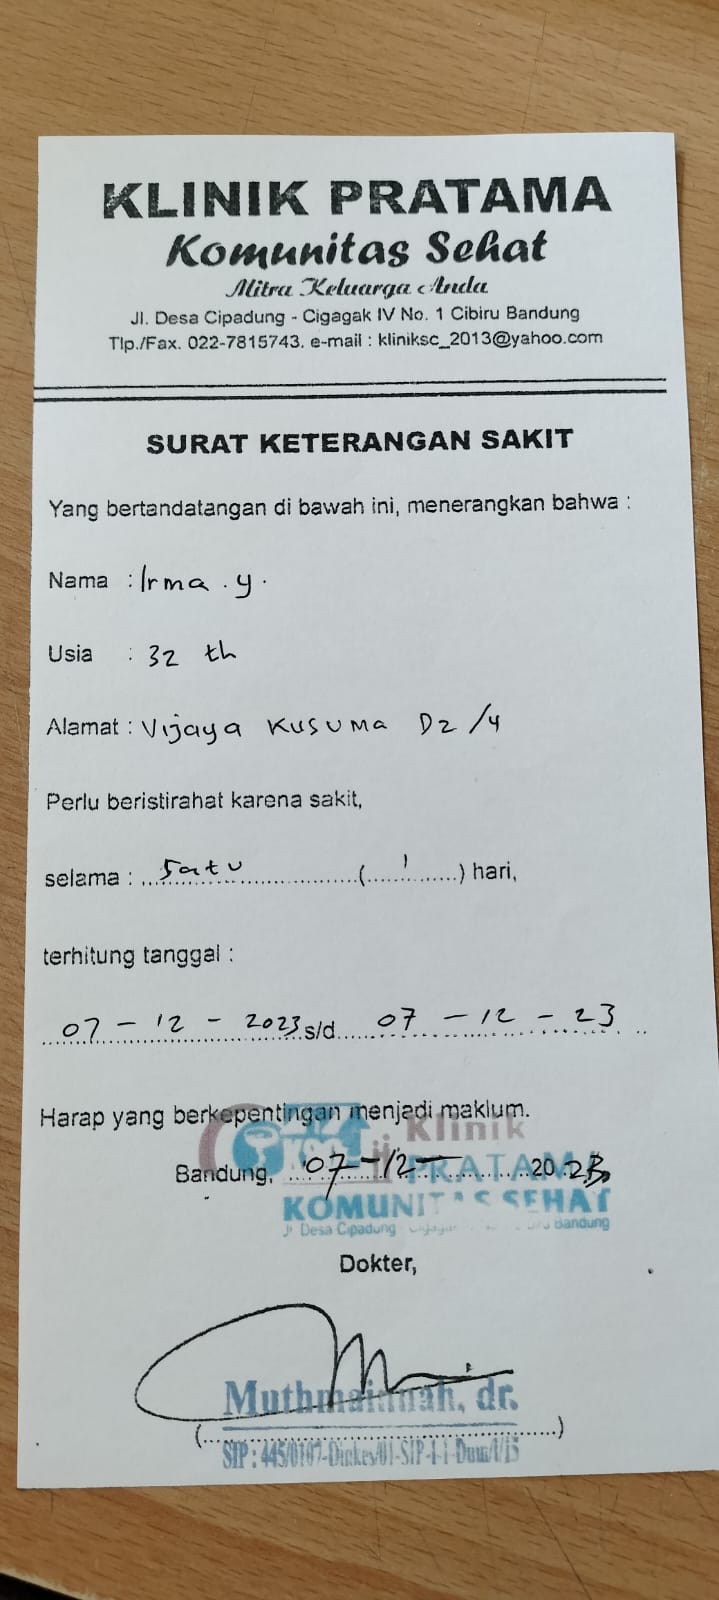 KLINIK PRATAMA
Komunitas Sehat
Mitra Keluarga Anda
Jl. Desa Cipadung - Cigagak IV No. 1 Cibiru Bandung
Tlp./Fax. 022-7815743. e-mail : kliniksc_2013@yahoo.com
SURAT KETERANGAN SAKIT
Yang bertandatangan di bawah ini, menerangkan bahwa :
Nama : Irma . y.
Usia : 32 th
Alamat : Vijaya Kusuma D2 /4
Perlu beristirahat karena sakit,
selama : satu ( 1 ) hari,
terhitung tanggal :
07 - 12 - 2023 s/d 07 - 12 - 23
Harap yang berkepentingan menjadi maklum.
Klinik
Bandung, 07-12- 2023
PRATAMA
KOMUNITAS SEHAT
Jl Desa Cipadung Bandung
Dokter,
Muthmainnah, dr.